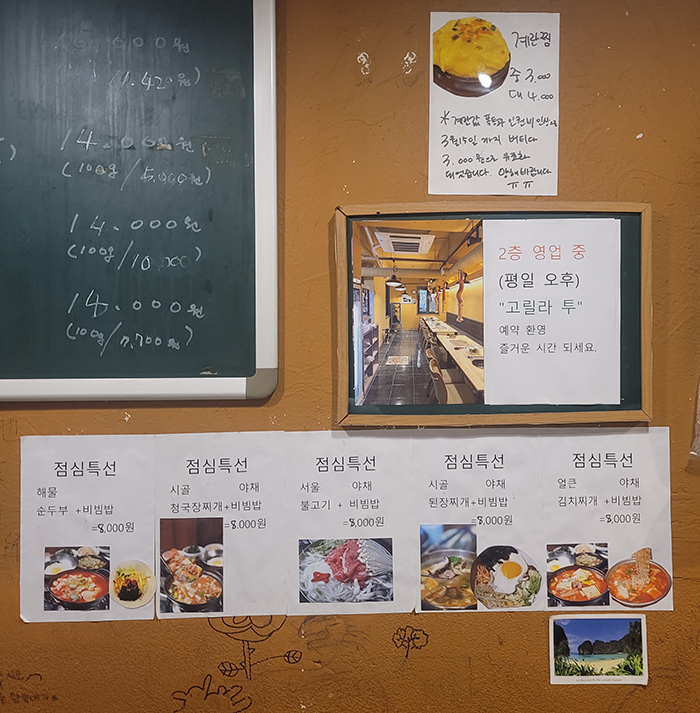 15.000원
/1.420원)
14.000원
(100g/5,000원)
14.000원
(100g/10,000)
14.000원
(100g/7,700원)
계란찜
중 3.000
대 4.000
*계란값 폭등과 인건비 인상으로
3월15일 까지 버티다
3.000원으로 유료화
되엇습니다. 양해바랍니다
ㅠㅠ
2층 영업 중
(평일 오후)
"고릴라 투"
예약 환영
즐거운 시간 되세요.
점심특선
해물
순두부 +비빔밥
=8,000원
점심특선
시골 야채
청국장찌개+비빔밥
=8,000원
점심특선
서울 야채
불고기 + 비빔밥
=8,000원
점심특선
시골 야채
된장찌개+비빔밥
=8,000원
점심특선
얼큰 야채
김치찌개 +비빔밥
=8,000원